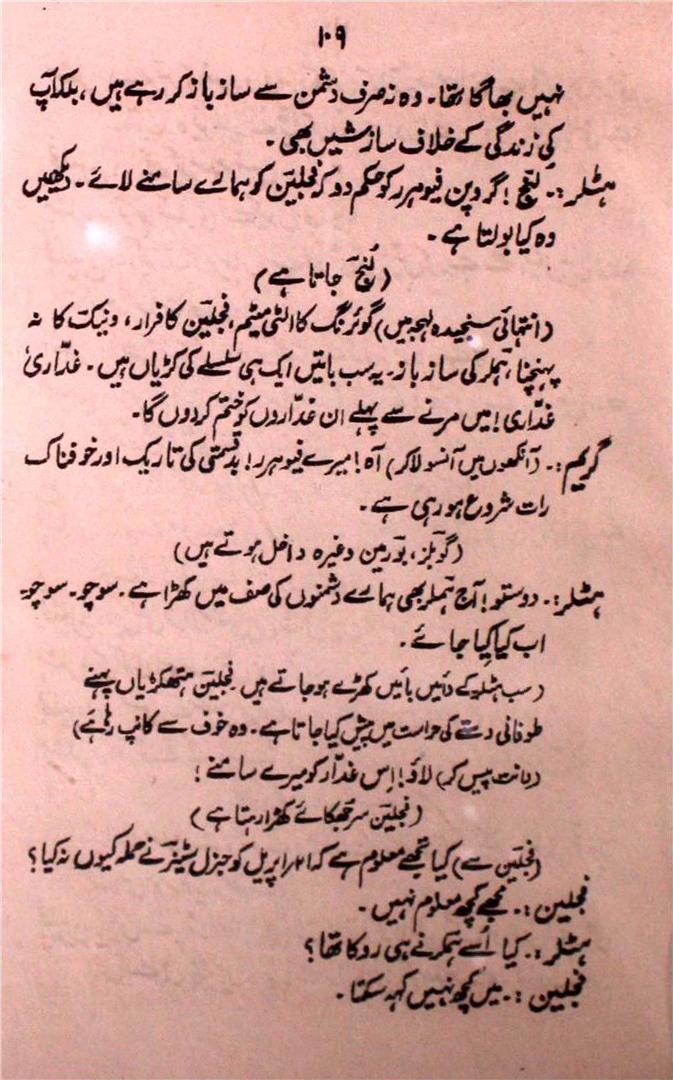 ۱۰۹
نہیں بھاگا تھا۔ وہ نہ صرف دشمن سے ساز باز کر رہے ہیں، بلکہ آپ
کی زندگی کے خلاف سازشیں بھی۔
ہٹلر:۔ لُنج! گروپن فیوہرر کو حکم دو کہ فجلین کو ہمارے سامنے لائے۔ دیکھیں
وہ کیا بولتا ہے۔
(لُنج جاتا ہے)
(انتہائی سنجیدہ لہجہ میں) گوئرنگ کا الٹی میٹم، فجلین کا فرار، ونیک کا نہ
پہنچنا، ہملر کی ساز باز۔ یہ سب باتیں ایک ہی سلسلے کی کڑیاں ہیں۔ غدّاری
غدّاری! میں مرنے سے پہلے ان غدّاروں کو ختم کر دوں گا۔
گریم:۔ (آنکھوں میں آنسو لا کر) آہ! میرے فیوہرر! بدقسمتی کی تاریک اور خوفناک
رات شروع ہو رہی ہے۔
(گوبلز، بورمین وغیرہ داخل ہوتے ہیں)
ہٹلر:۔ دوستو! آج ہملر بھی ہمارے دشمنوں کی صف میں کھڑا ہے۔ سوچو۔ سوچو۔
اب کیا کِیا جائے۔
(سب ہٹلر کے دائیں بائیں کھڑے ہو جاتے ہیں۔ فجلین ہتھکڑیاں پہنے
طوفانی دستے کی حراست میں پیش کیا جاتا ہے۔ وہ خوف سے کانپ رہا ہے)
(دانت پیس کر) لاؤ! اِس غدّار کو میرے سامنے!
(فجلین سر جھکائے کھڑا رہتا ہے)
(فجلین سے) کیا تجھے معلوم ہے کہ ۲۱ اپریل کو جنرل سٹینر نے حملہ کیوں نہ کیا؟
فجلین:۔ مجھے کچھ معلوم نہیں۔
ہٹلر:۔ کیا اُسے ہملر نے ہی روکا تھا؟
فجلین:۔ میں کچھ نہیں کہہ سکتا۔